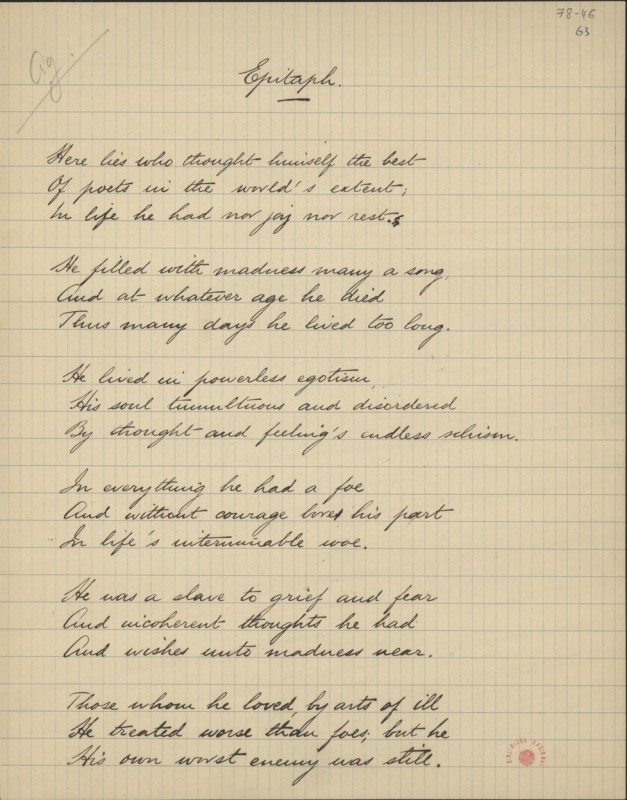 78-46
63
Ag.
Epitaph.
Here lies who thought himself the best
Of poets in the world's extent;
In life he had nor joy nor rest.
He filled with madness many a song,
And at whatever age he died
Thus many days he lived too long.
He lived in powerless egotism,
His soul tumultuous and disordered
By thought and feeling's endless schism.
In everything he had a foe
And without courage bore his part
In life's interminable woe.
He was a slave to grief and fear
And incoherent thoughts he had
And wishes unto madness near.
Those whom he loved, by arts of ill
He treated worse than foes; but he
His own worst enemy was still.
BIBLIOTECA NACIONAL